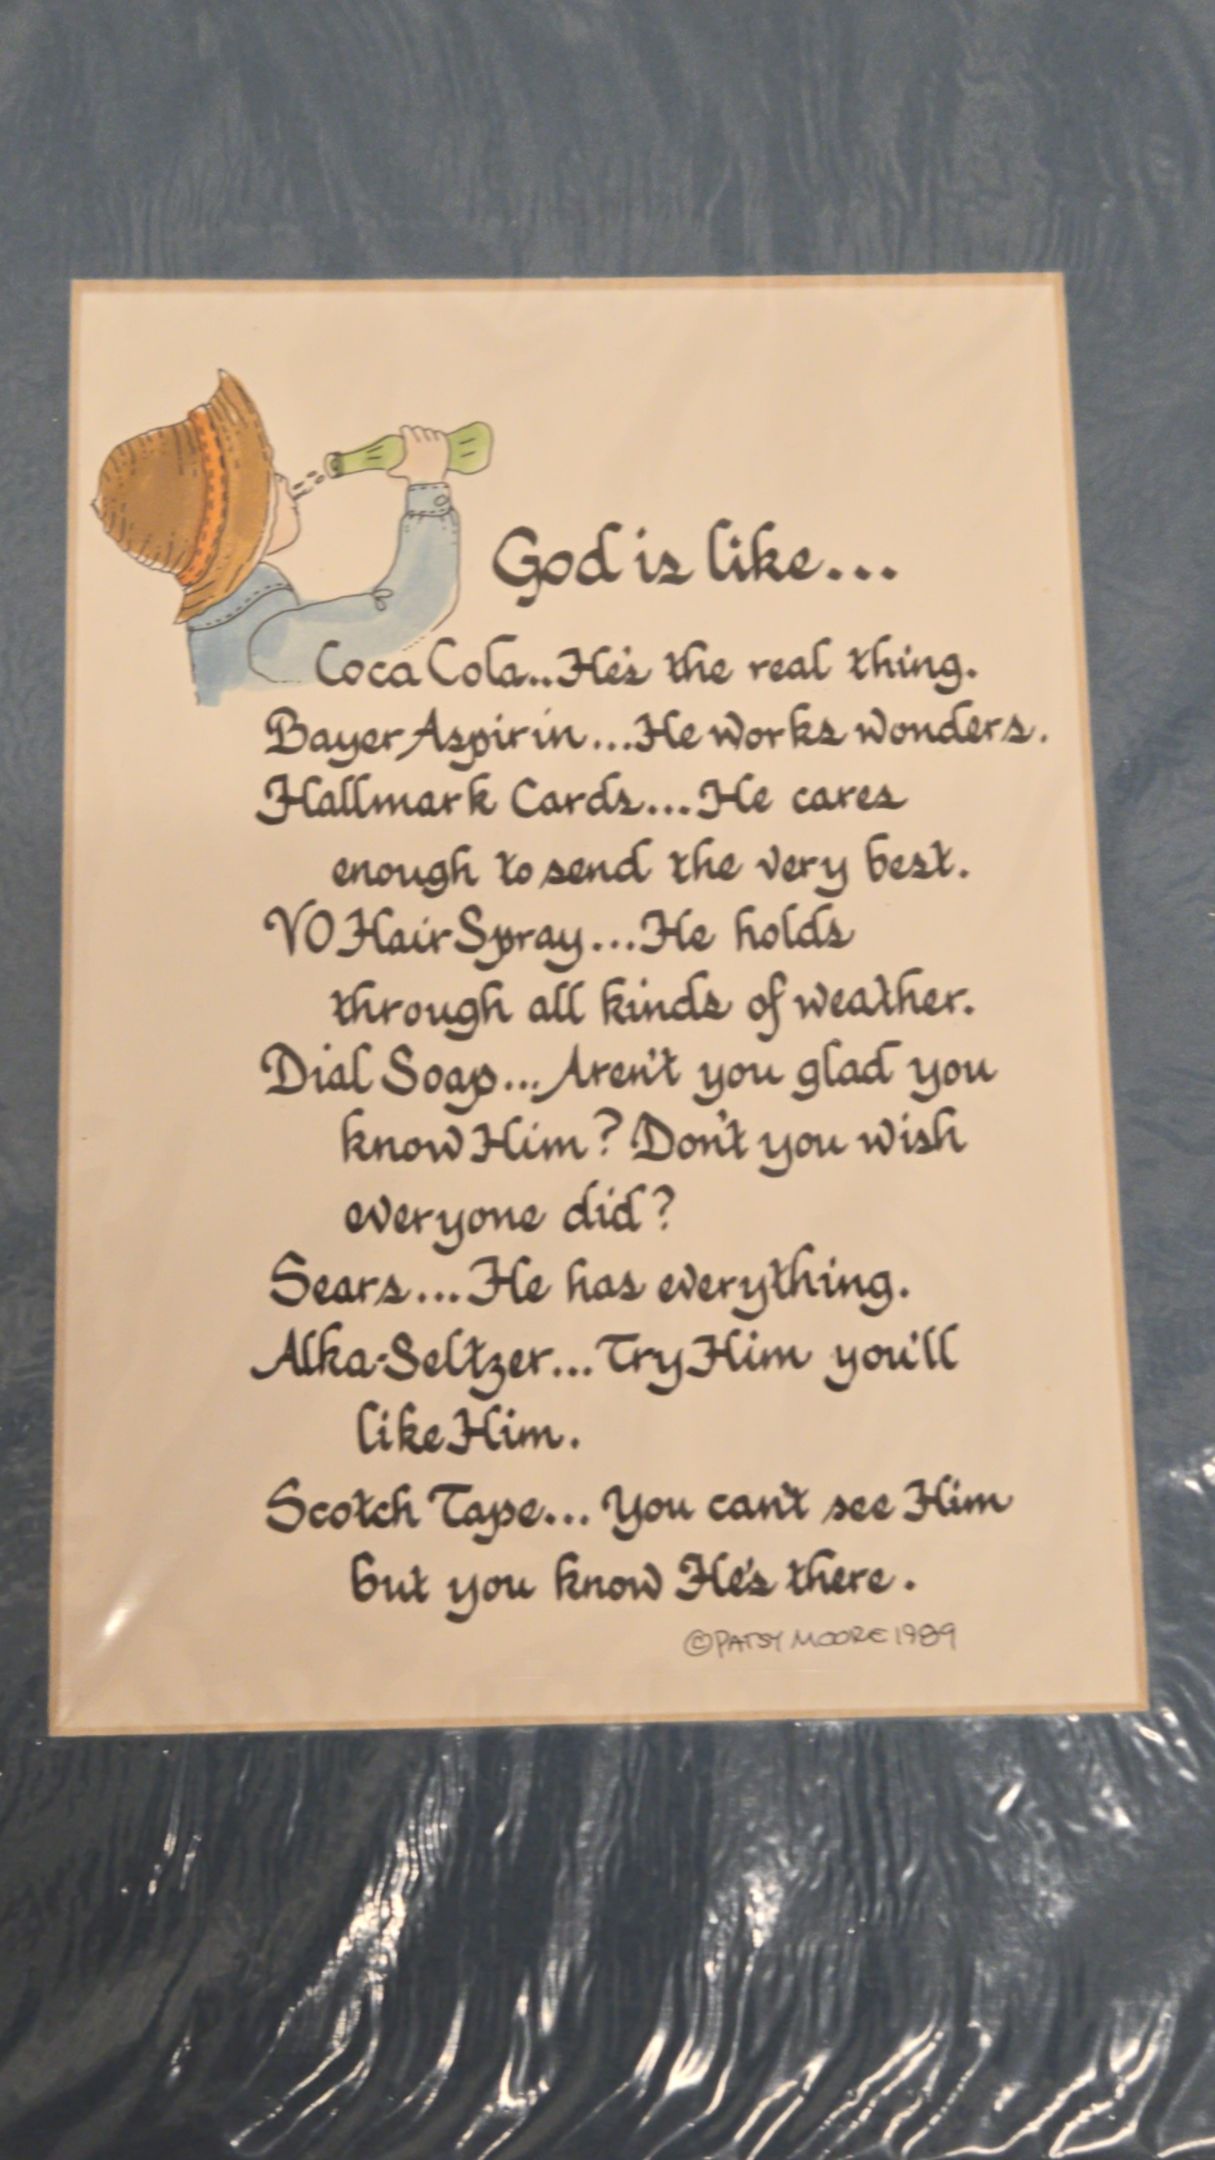 God is like...
Coca Cola...He's the real thing.
Bayer Aspirin....He works wonders.
Hallmark Cards....He cares
enough to send the very best.
VO Hair Spray....He holds
through all kinds of weather.
Dial Soap...Aren't you glad you
know Him? Don't you wish
everyone did?
Sears....He has everything.
Alka-Seltzer...Try Him you'll
like Him.
Scotch Tape... You can't see Him
but you know He's there.
©PATSY MOORE 1989